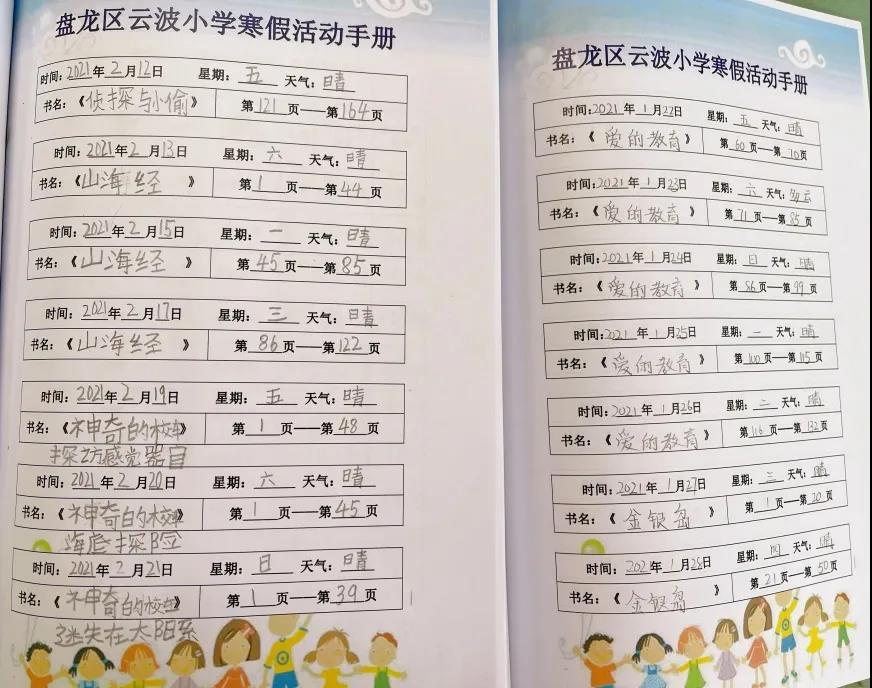 盘龙区云波小学寒假活动手册
时间：2021年2月12日 星期：五 天气：晴
书名：《侦探与小偷》 第121页——第164页
时间：2021年2月13日 星期：六 天气：晴
书名：《山海经》 第1页——第44页
时间：2021年2月15日 星期：一 天气：晴
书名：《山海经》 第45页——第85页
时间：2021年2月17日 星期：三 天气：晴
书名：《山海经》 第86页——第122页
时间：2021年2月19日 星期：五 天气：晴
书名：《神奇的校车》 第1页——第48页
探访感觉器官
时间：2021年2月20日 星期：六 天气：晴
书名：《神奇的校车》 第1页——第45页
海底探险
时间：2021年2月21日 星期：日 天气：晴
书名：《神奇的校车》 第1页——第39页
迷失在太阳系
盘龙区云波小学寒假活动手册
时间：2021年1月22日 星期：五 天气：晴
书名：《爱的教育》 第60页——第70页
时间：2021年1月23日 星期：六 天气：多云
书名：《爱的教育》 第71页——第85页
时间：2021年1月24日 星期：日 天气：晴
书名：《爱的教育》 第86页——第99页
时间：2021年1月25日 星期：一 天气：晴
书名：《爱的教育》 第100页——第115页
时间：2021年1月26日 星期：二 天气：晴
书名：《爱的教育》 第116页——第132页
时间：2021年1月27日 星期：三 天气：晴
书名：《金银岛》 第1页——第20页
时间：202年1月28日 星期：四 天气：晴
书名：《金银岛》 第21页——第50页